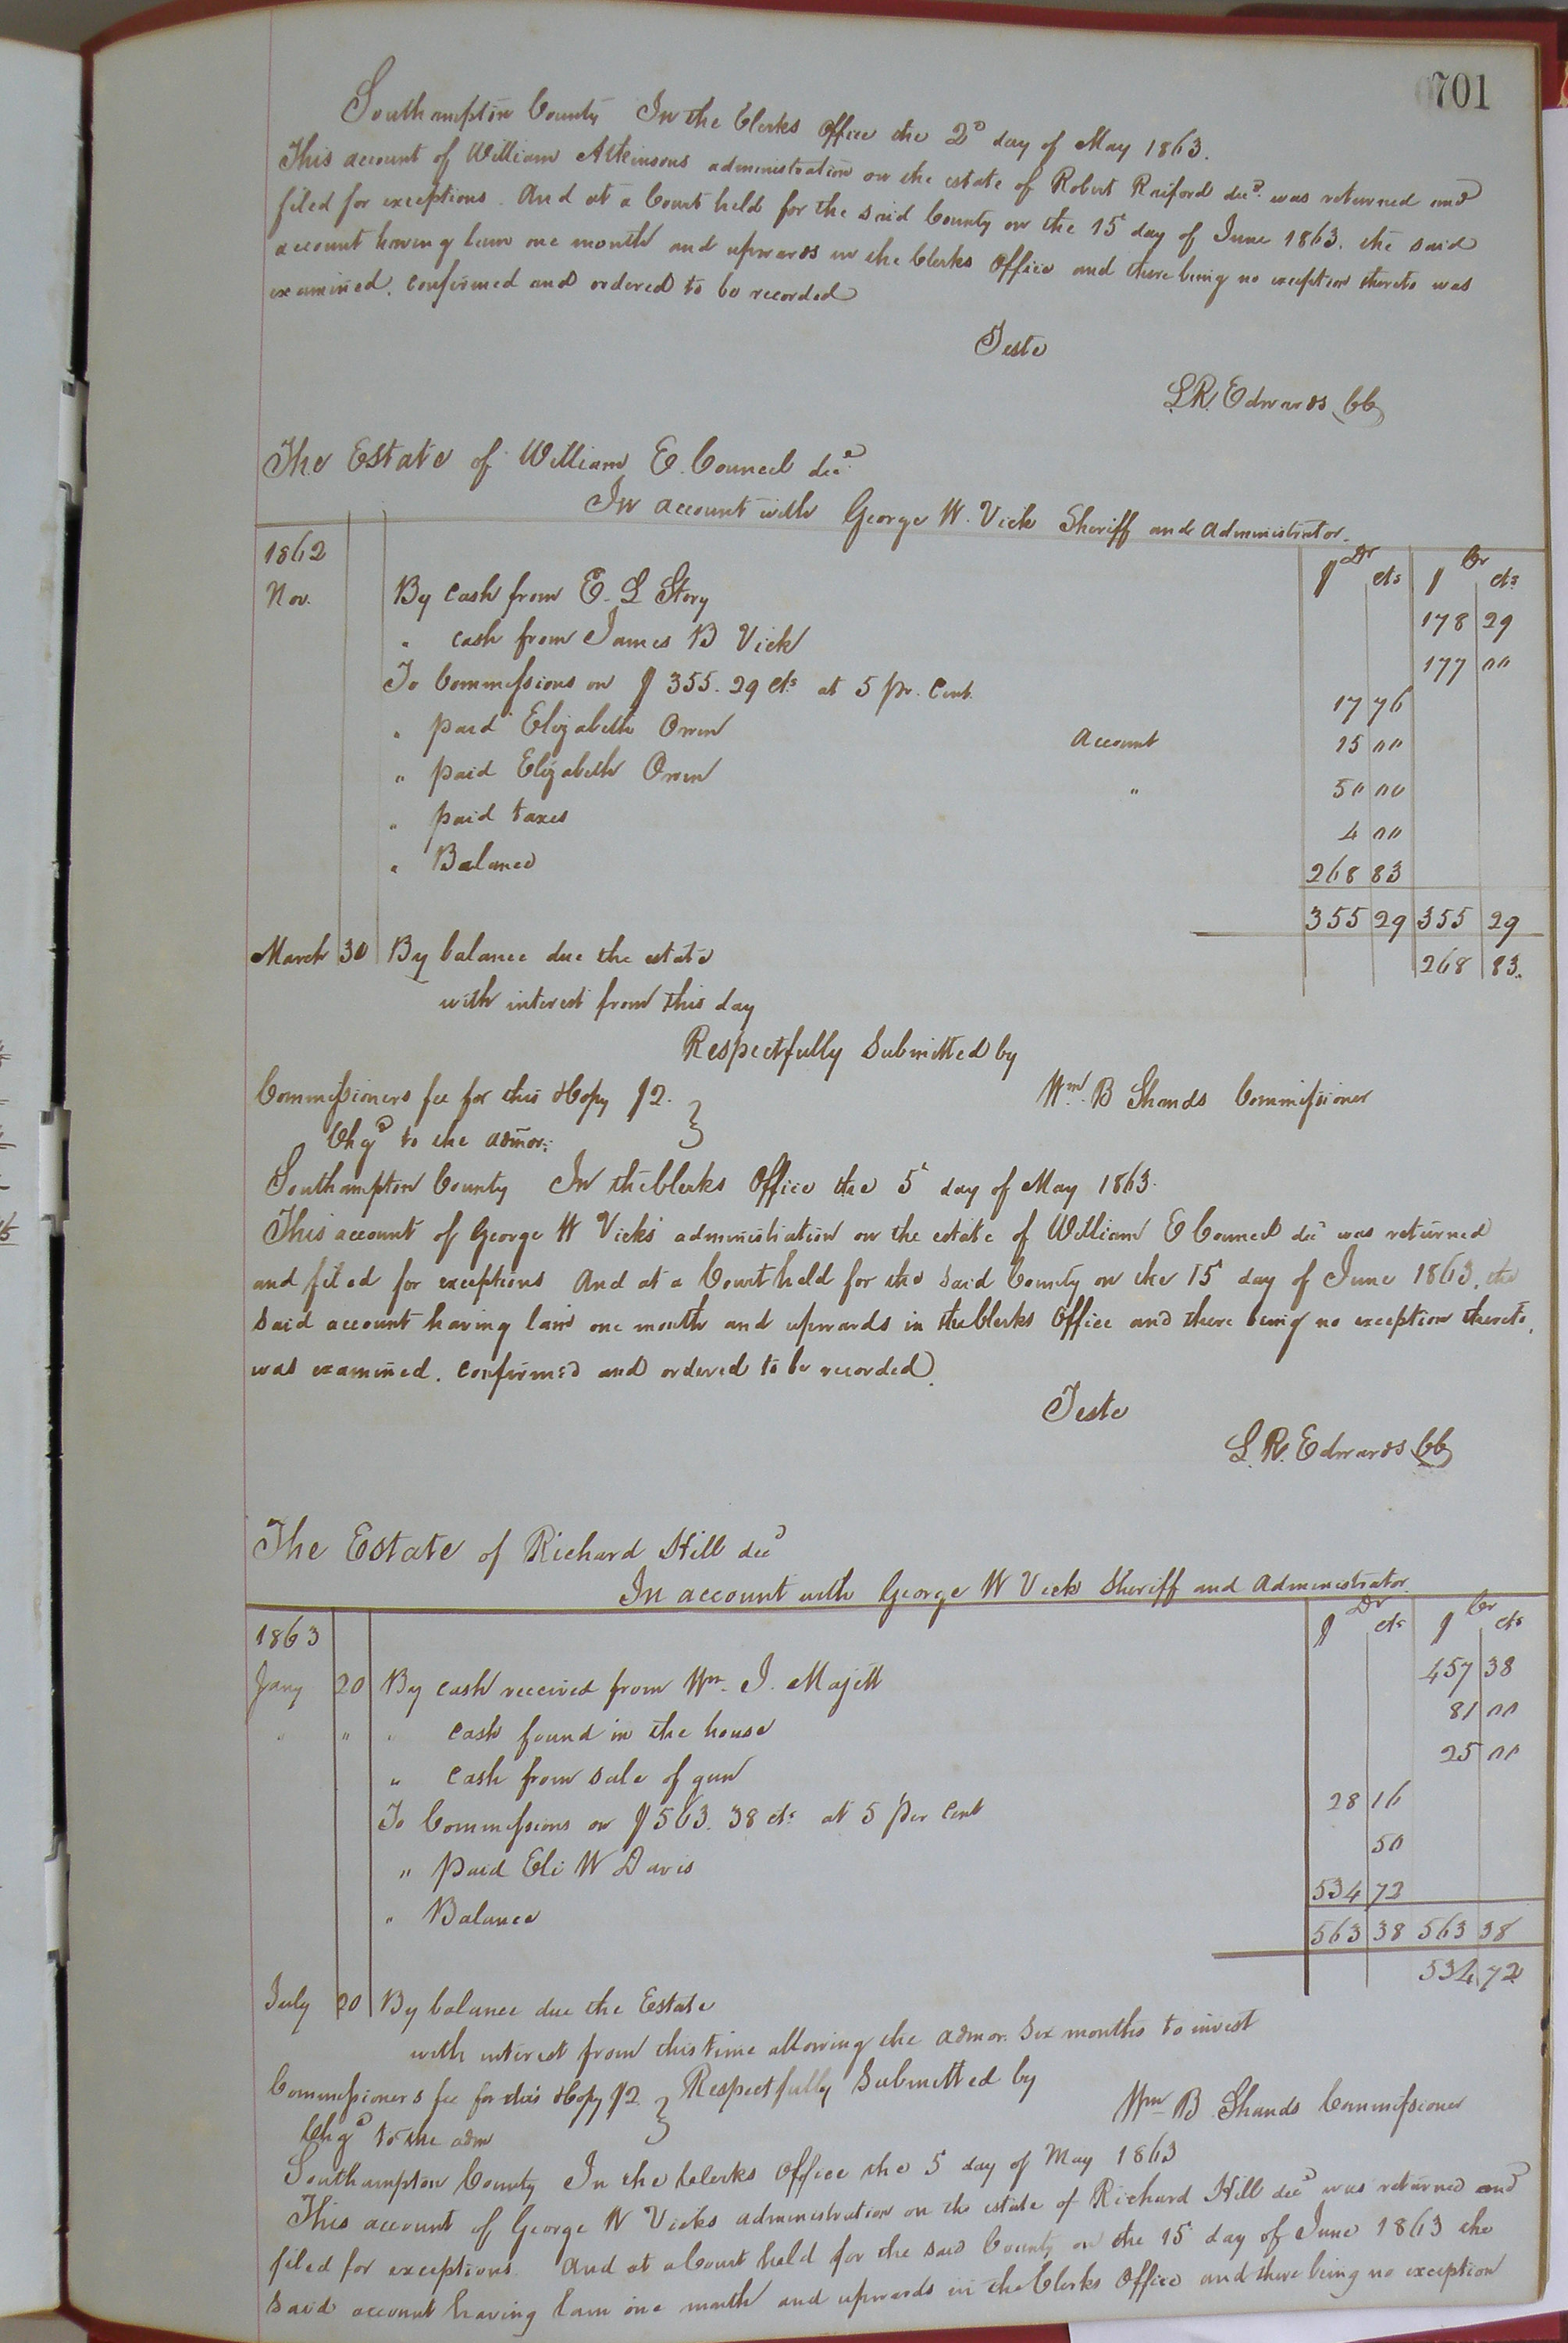 701
Southampton County In the Clerks Office the 2d day of May 1863.
This account of William Atkinsons administration on the estate of Robert Raiford decd. was returned and
filed for exceptions. And at a Court held for the said County on the 15 day of June 1863. the said
account having lain one month and upwards in the Clerks Office and there being no exception thereto was
examined. confirmed and ordered to be recorded
Teste
L.R. Edwards CC
The Estate of William E. Councel decd.
In account with George W. Vick Sheriff and Administrator.
1862 $ Dr cts $ Cr cts
Nov. By cash from E. L Story 178 29
" cash from James B Vick 177 00
To Commissions on $355.29 cts at 5 pr. Cent 17 76
" paid Elizabeth Owen Account 15 00
" paid Elizabeth Owen " 50 00
" paid taxes 4 00
" Balance 268 83
355 29 355 29
March 30 By balance due the estate 268 83.
with interest from this day
Respectfully Submitted by
Commissioners fee for this &Copy $2. } Wm. B Shands Commissioner
Chgd to the admor.
Southampton County In the Clerks Office the 5 day of May 1863.
This account of George W Vicks administration on the estate of William E Councel decd was returned
and filed for exceptions And at a Court held for the said County on the 15 day of June 1863, the
said account having lain one month and upwards in the Clerks Office and there being no exception thereto,
was examined. confirmed and ordered to be recorded.
Teste
L. R. Edwards CC
The Estate of Richard Hill decd
In account with George W Vick Sheriff and Administrator.
1863 $ Dr cts $ Cr cts
Jany 20 By cash received from Wm. J. Majett 457 38
" " " cash found in the house 81 00
" cash from sale of gun 25 00
To Commissions on $563.38 cts at 5 per Cent 28 16
" paid Eli W Davis 50
" Balance 534 72
563 38 563 38
July 20 By balance due the Estate 534 72
with interest from this time allowing the admor. six months to invest
Commissioners fee for this &Copy $2 } Respectfully Submitted by
Chgd to the adm Wm B Shands Commissioner
Southampton County In the Clerks Office the 5 day of May 1863
This account of George W Vicks administration on the estate of Richard Hill decd was returned and
filed for exceptions. And at a Court held for the said County on the 15 day of June 1863 the
said account having lain one month and upwards in the Clerks Office and there being no exception